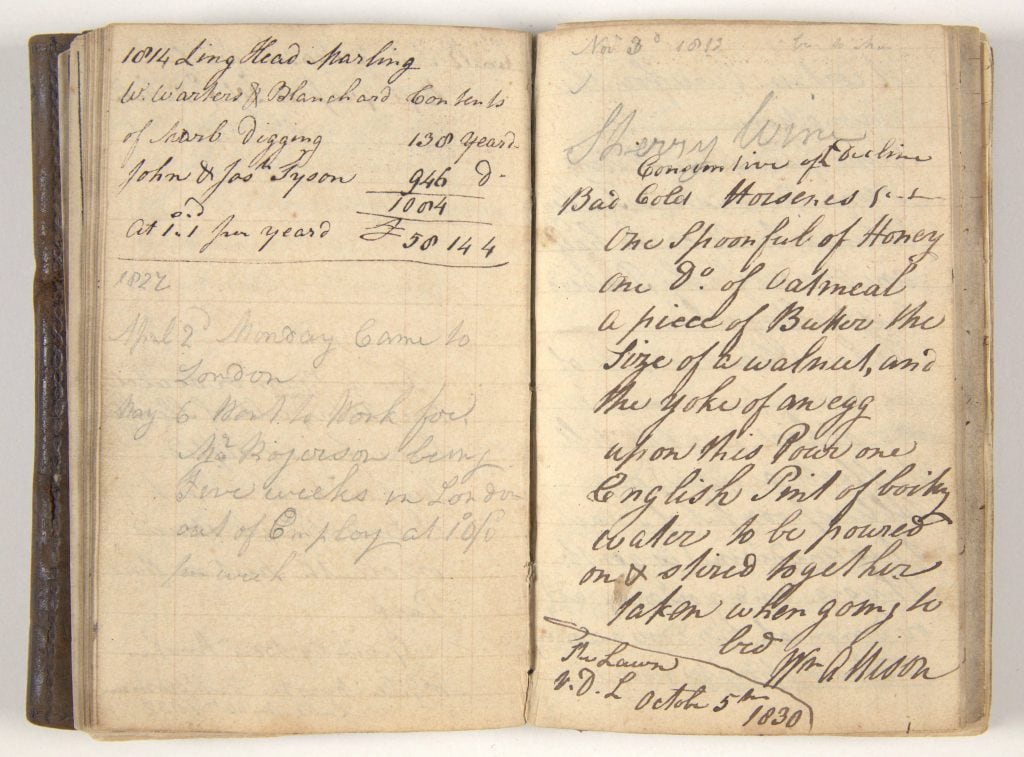 1814 Ling Head Marling
W. Warters & Blanchard Contents
of Marb Digging 138 yeards
John & Jos.h Tyson 946 Do
1084
At 1s..1d per yeard £ 58 14 4
1827
April 2d Monday Came to
London
May 6 Went to Work for
Mr Rogerson being
Five weeks in London
out of Employ at
per week
Novr 3d 1812
Sherry Wine
Decline
Bad Cold Horsenes
One Spoonful of Honey
One Do. of Oatmeal
a piece of Butter the
Size of a walnut, and
the yoke of an egg
upon this Pour one
English Pint of boiling
water to be poured
on & stired together
taken when going to
bed
Wm Allison
The Lawn
V.D.L Octobr 5th
1830